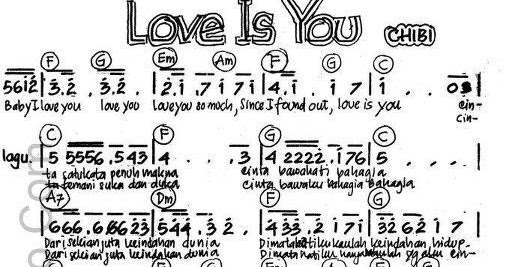 Love Is You CHIBI
F G Em Am F G C
5612 | 3.2 . 3.2 . | 2.1 .7 1 7 1 | 4.1 . 1 7 | 1 . . 03
Baby I love you love you Love you so much, Since I found out, love is you cin-
cin-
C F G C
lagu. 5 5556 .543 | 4 . . .3 | 4 2222 .176 | 5 . . .
ta satu kata penuh makna cinta bawahati bahagia
ta temani suka dan duka cinta bawaku bahagia bahagia
A7 Dm F G
666.66623 | 544.32. | 433.2171 | 326217 |
Dari sekian juta keindahan dunia Dimata hatiku kaulah keindahan hidup-
Dari sekian juta keindahan dunia Dimata hatiku yg aku cin-